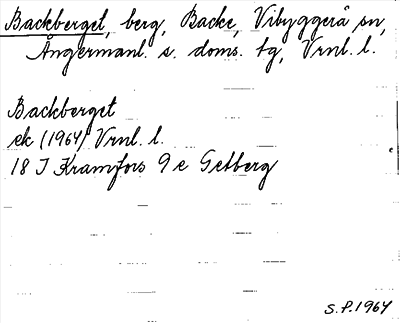 Backberget, berg, Backe, Vibyggerå sn,
Ångermanl. s. doms. tg, Vrnl. l.
Backberget
ek (1964) Vrnl. l.
18 J Kramfors 9 e Getberg
S.P. 1964